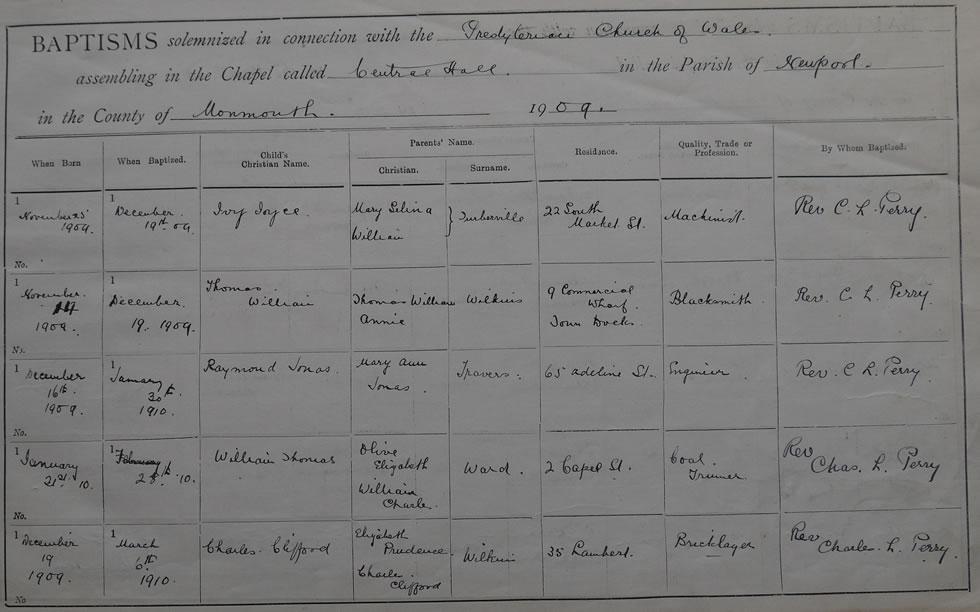 BAPTISMS solemnized in connection with the Presbyterian Church of Wales.
assembling in the Chapel called Central Hall. in the Parish of Newport.
in the County of Monmouth. 1909.
When Born
When Baptized.
Child's
Christian Name.
Parents' Name.
Christian.
Surname.
Residence.
Quality, Trade or
Profession.
By Whom Baptized.
1
November 25
1909.
No.
1
December.
19th 09.
Ivy Joyce.
Mary Selina
William
Turberville
22 South
Market St.
Machinist.
Rev C. L. Perry.
1
November.
1909.
No.
1
December.
19. 1909.
Thomas.
William
Thomas William
Annie
Wilkins
9 Commercial
Wharf.
Town Docks.
Blacksmith
Rev. C. L. Perry.
1
December
16th
1909.
No.
1
January
30th
1910.
Raymond Jonas.
Mary Ann
Jonas.
Travers.
65 Adeline St.
Engineer
Rev. C L. Perry
1
January
21st 10.
No.
1
February
2 th 10.
William Thomas
Olive
Elizabeth
William
Charles.
Ward.
2 Capel St.
Coal.
Trimmer.
Rev
Chas. L. Perry
1
December
19
1909.
No
1
March
6th
1910.
Charles. Clifford
Elizabeth
Prudence.
Charles.
Clifford
Wilkins
35 Lambert.
Bricklayer
Rev
Charles. L. Perry.